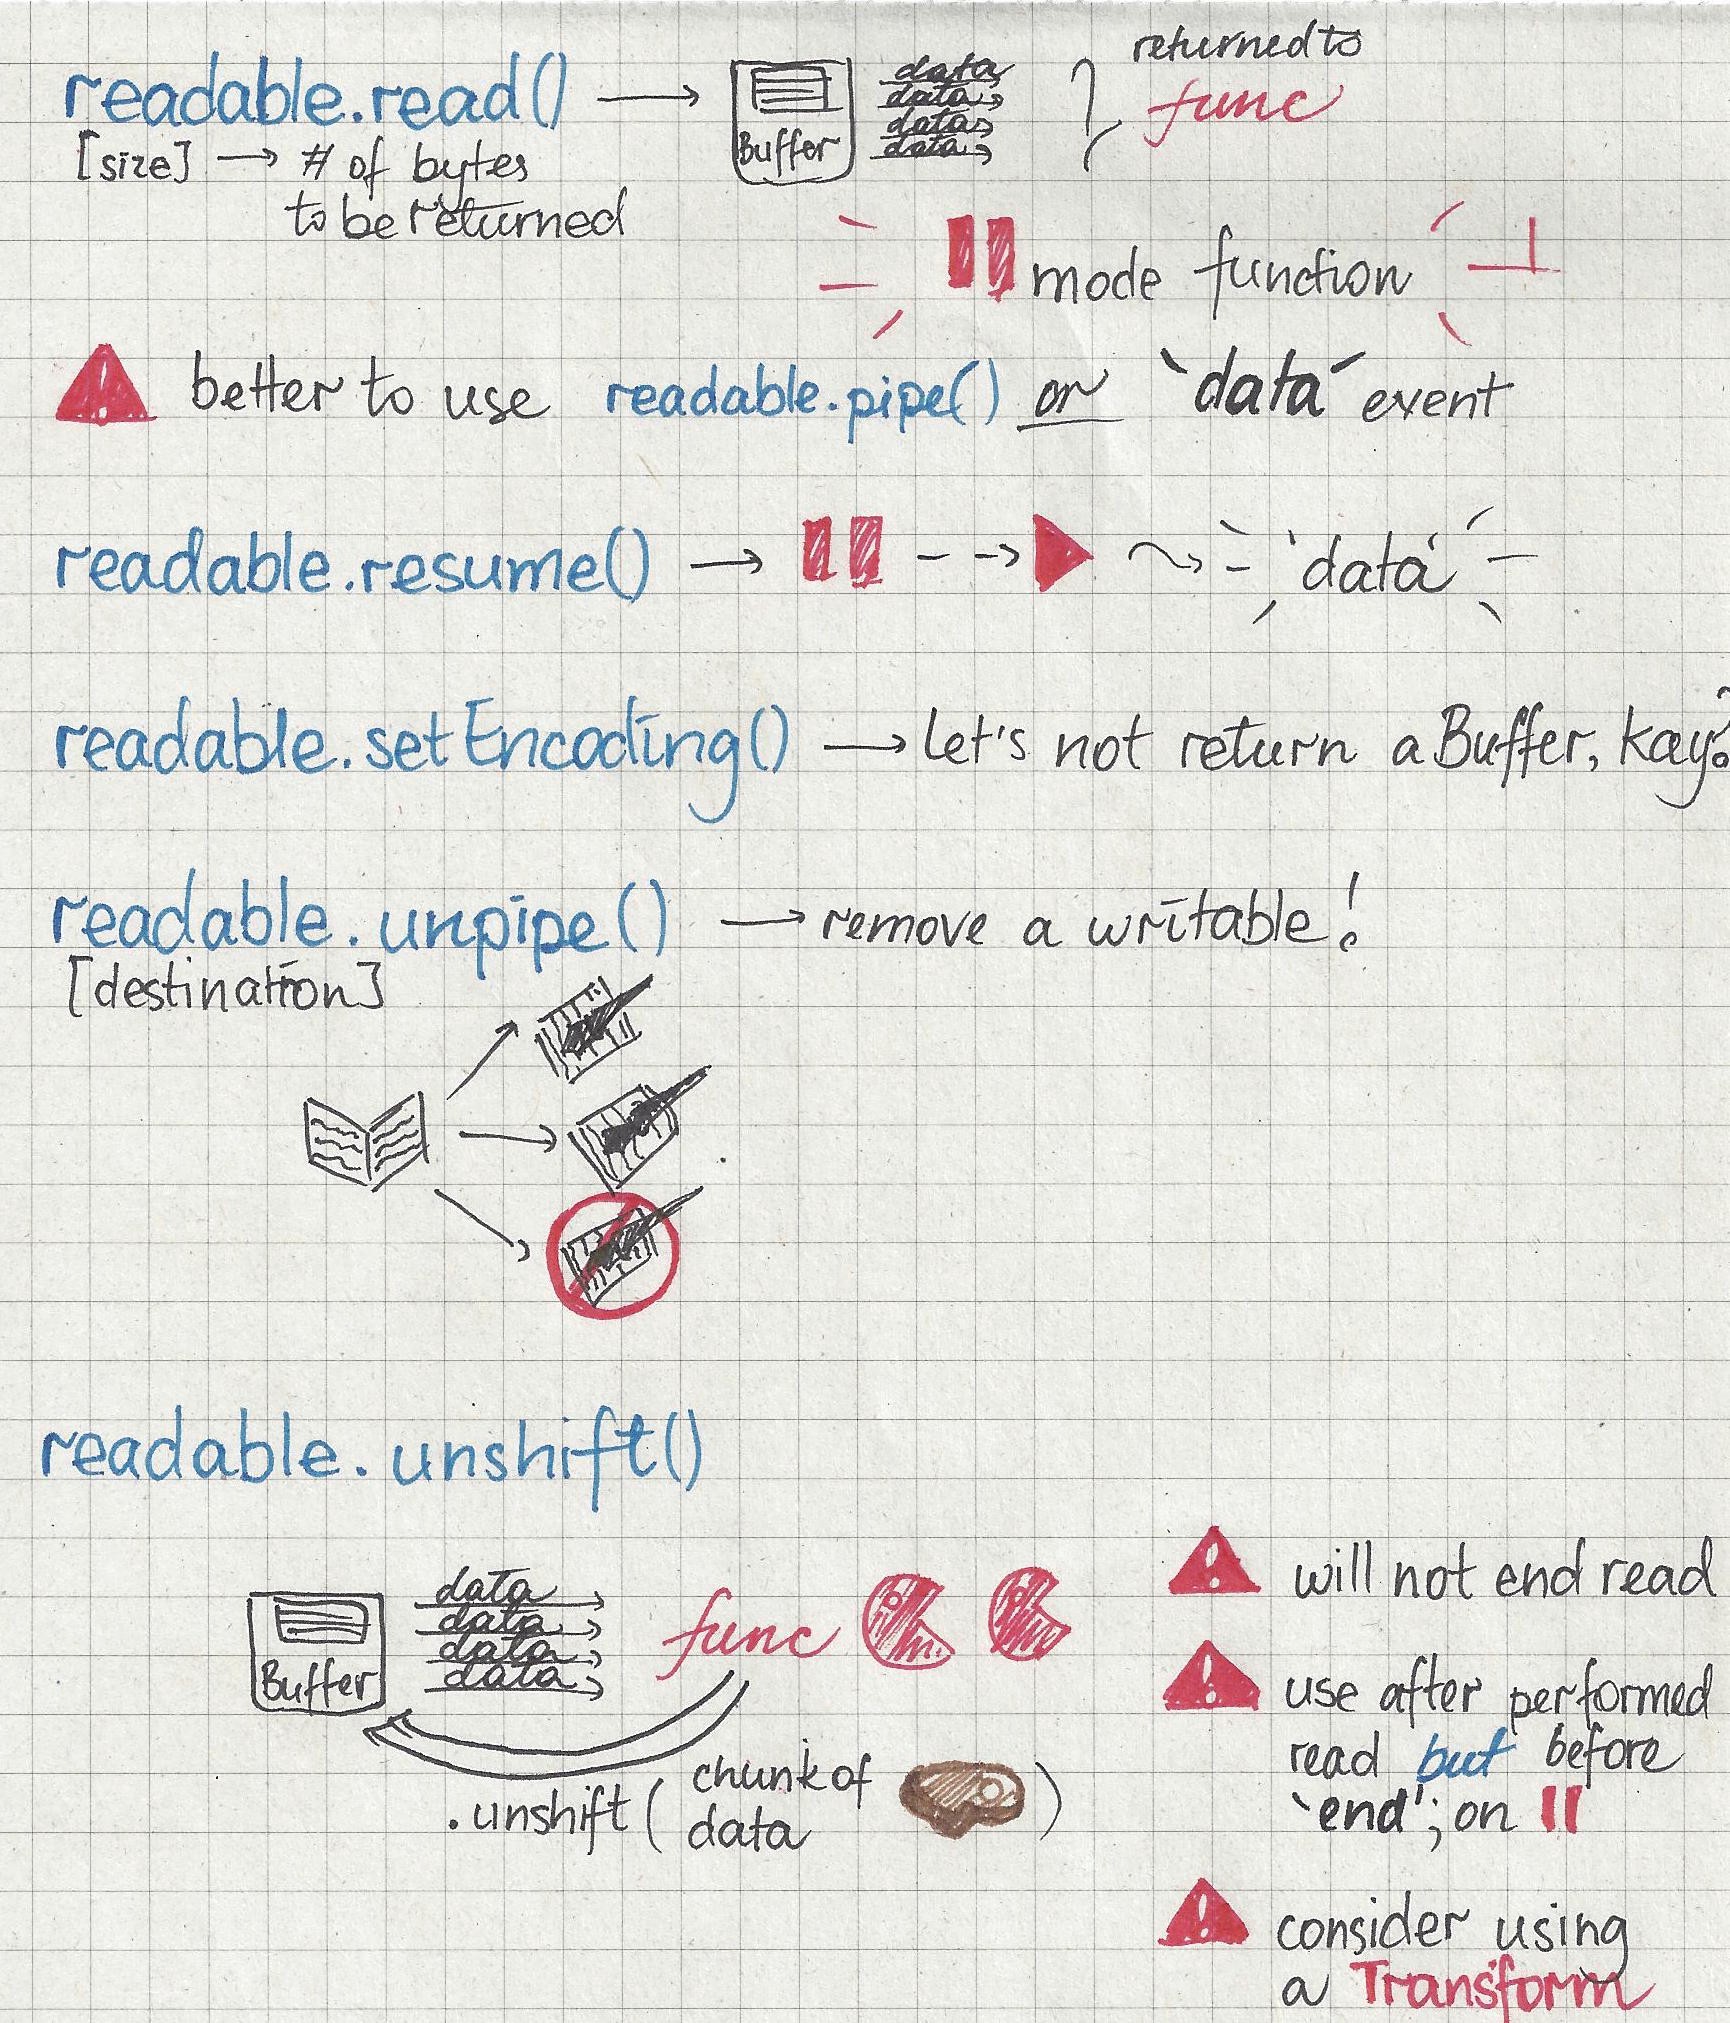 readable.read() → returned to
Buffer data data data data func
[size] → # of bytes
to be returned
mode function
better to use readable.pipe() or `data´ event
readable.resume() → 'data'
readable.setEncoding() → Let's not return a Buffer, kay?
readable.unpipe() → remove a writable!
[destination]
readable.unshift()
data
data
data
data
Buffer
func
.unshift( chunk of
data )
! will not end read
! use after performed
read but before
`end'; on
! consider using
a Transform